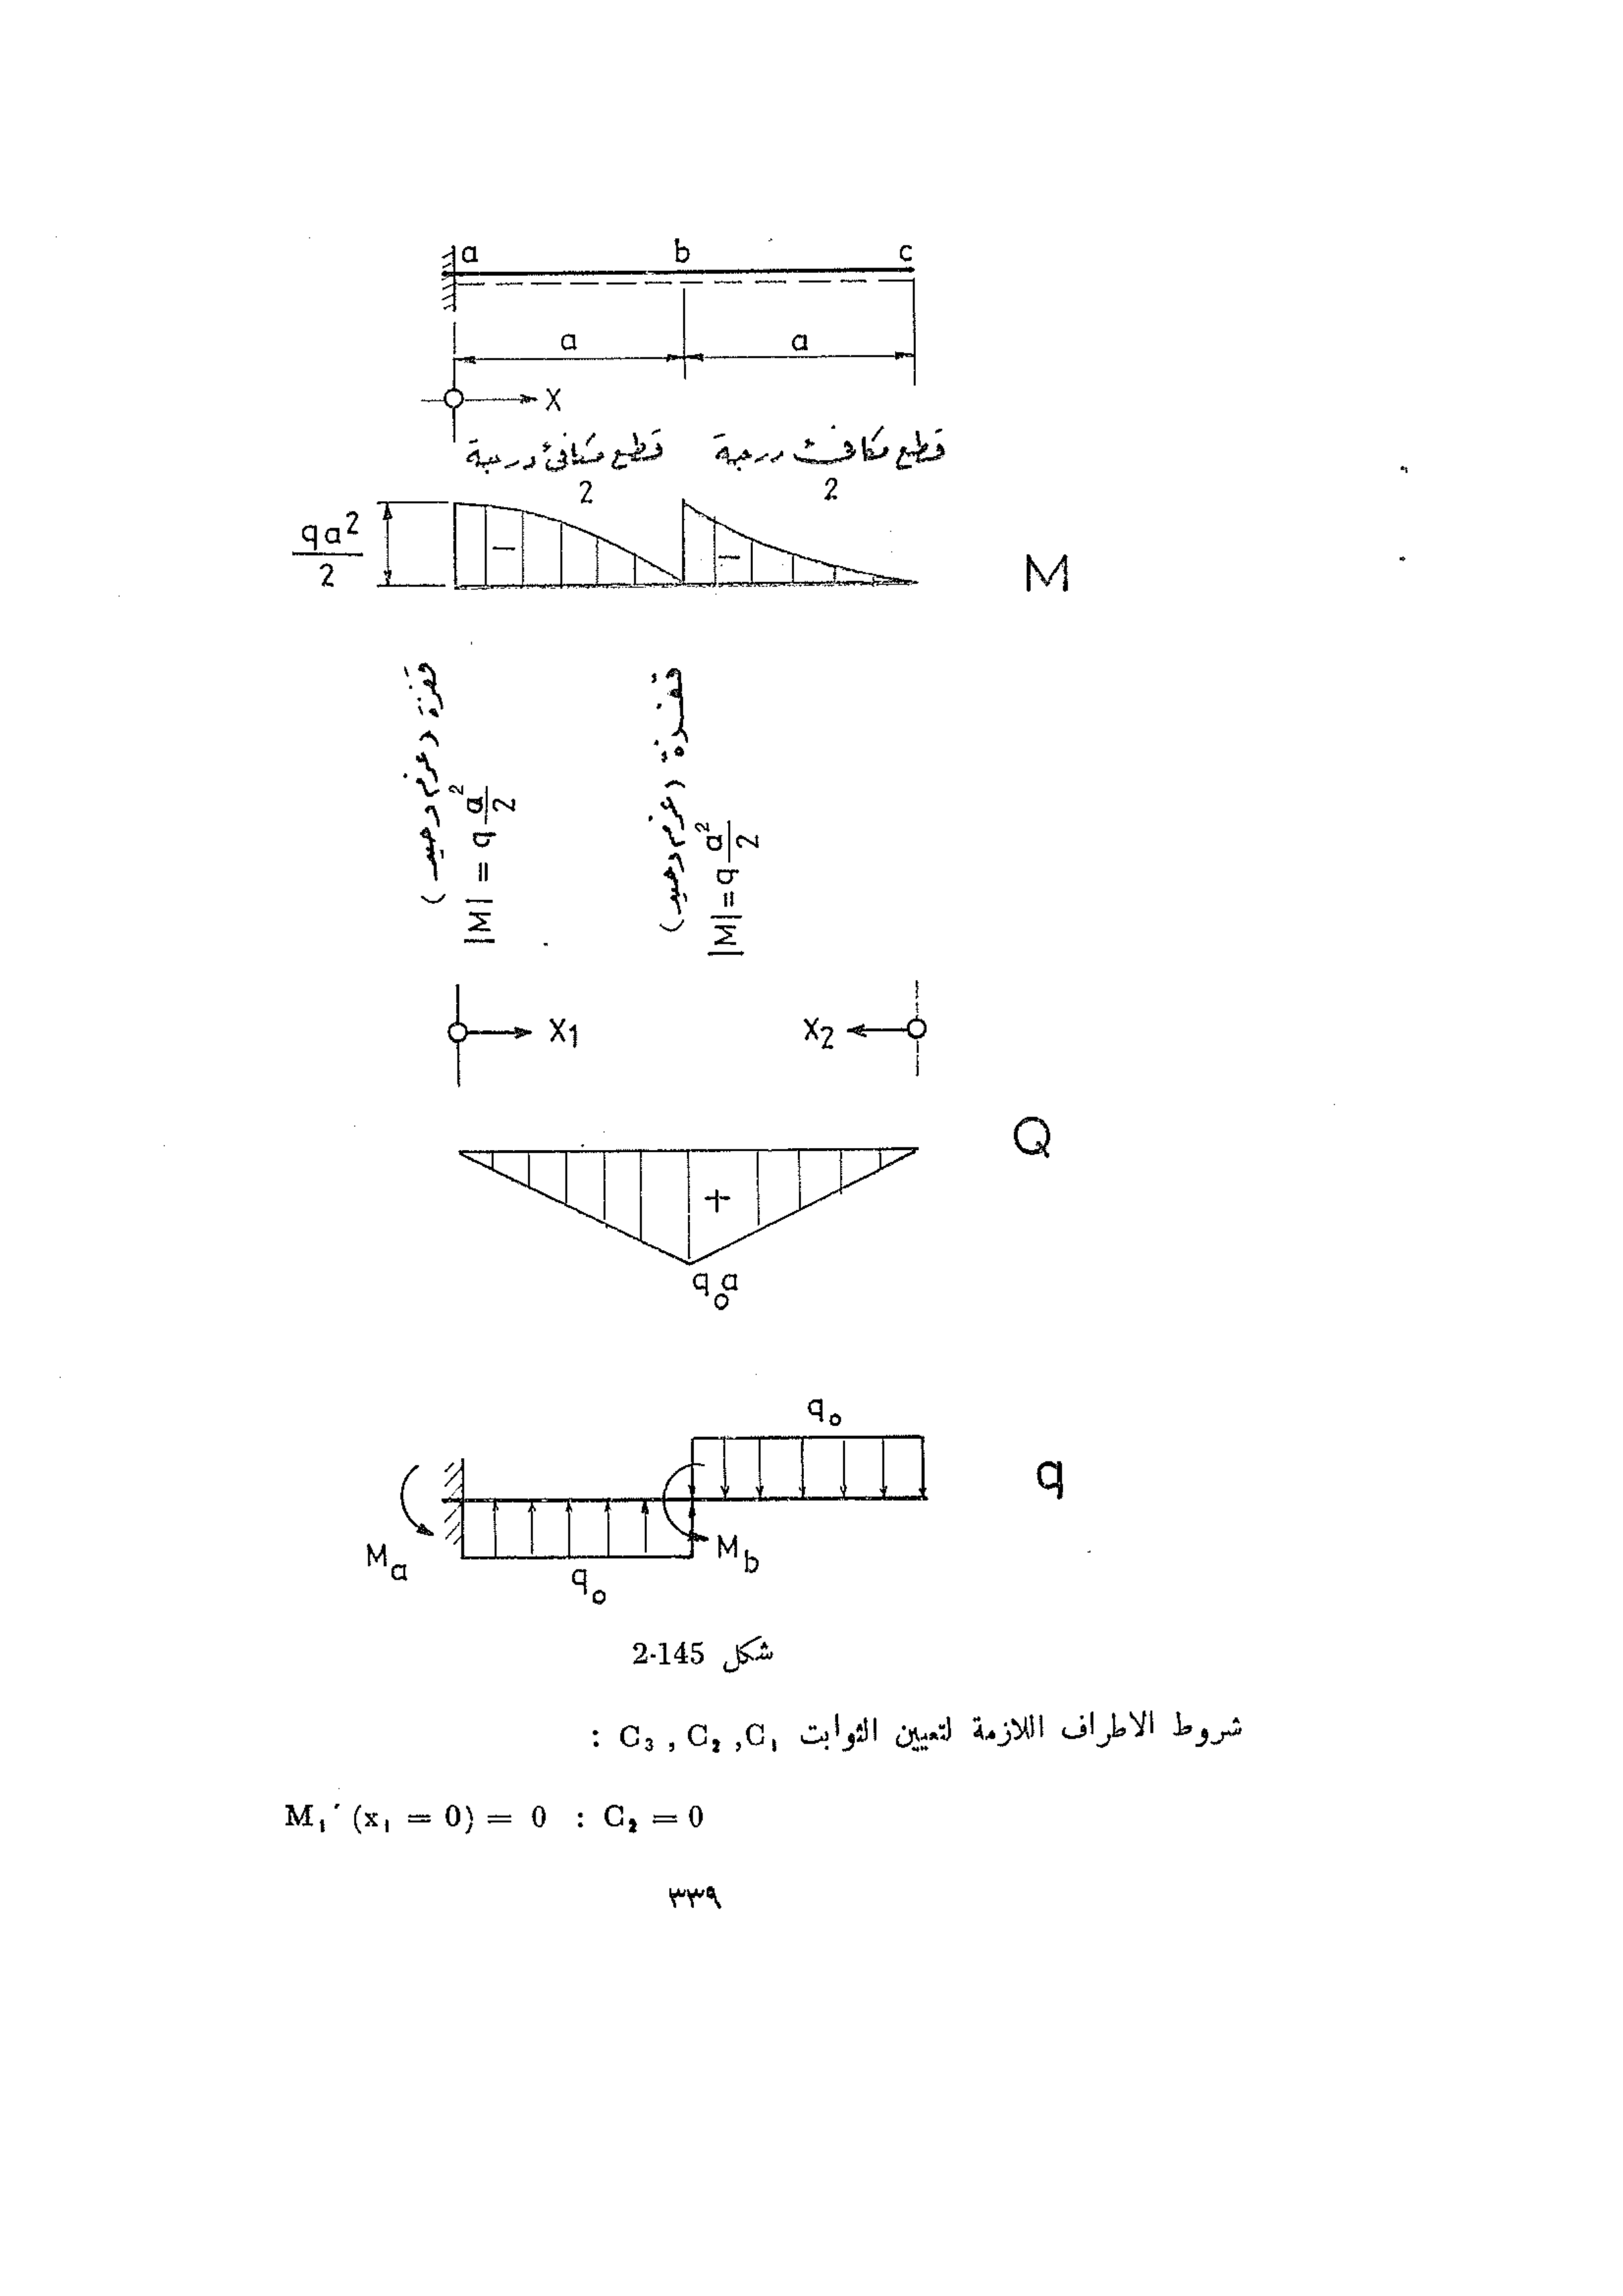 a b c
a a
X
قطع مكافئ درجة قطع مكافئ درجة
2 2
qa²
2
M
قفزة (عزم وحيد)
|M| = q a²/2
قفزة (عزم وحيد)
|M| = q a²/2
X₁ X₂
Q
+
q₀a
q₀
q
Mₐ
M_b
q₀
شكل 2-145
شروط الاطراف اللازمة لتعيين الثوابت C₃ , C₂ ,C₁ :
M₁′ (x₁ = 0) = 0 : C₂ = 0
٣٣٩